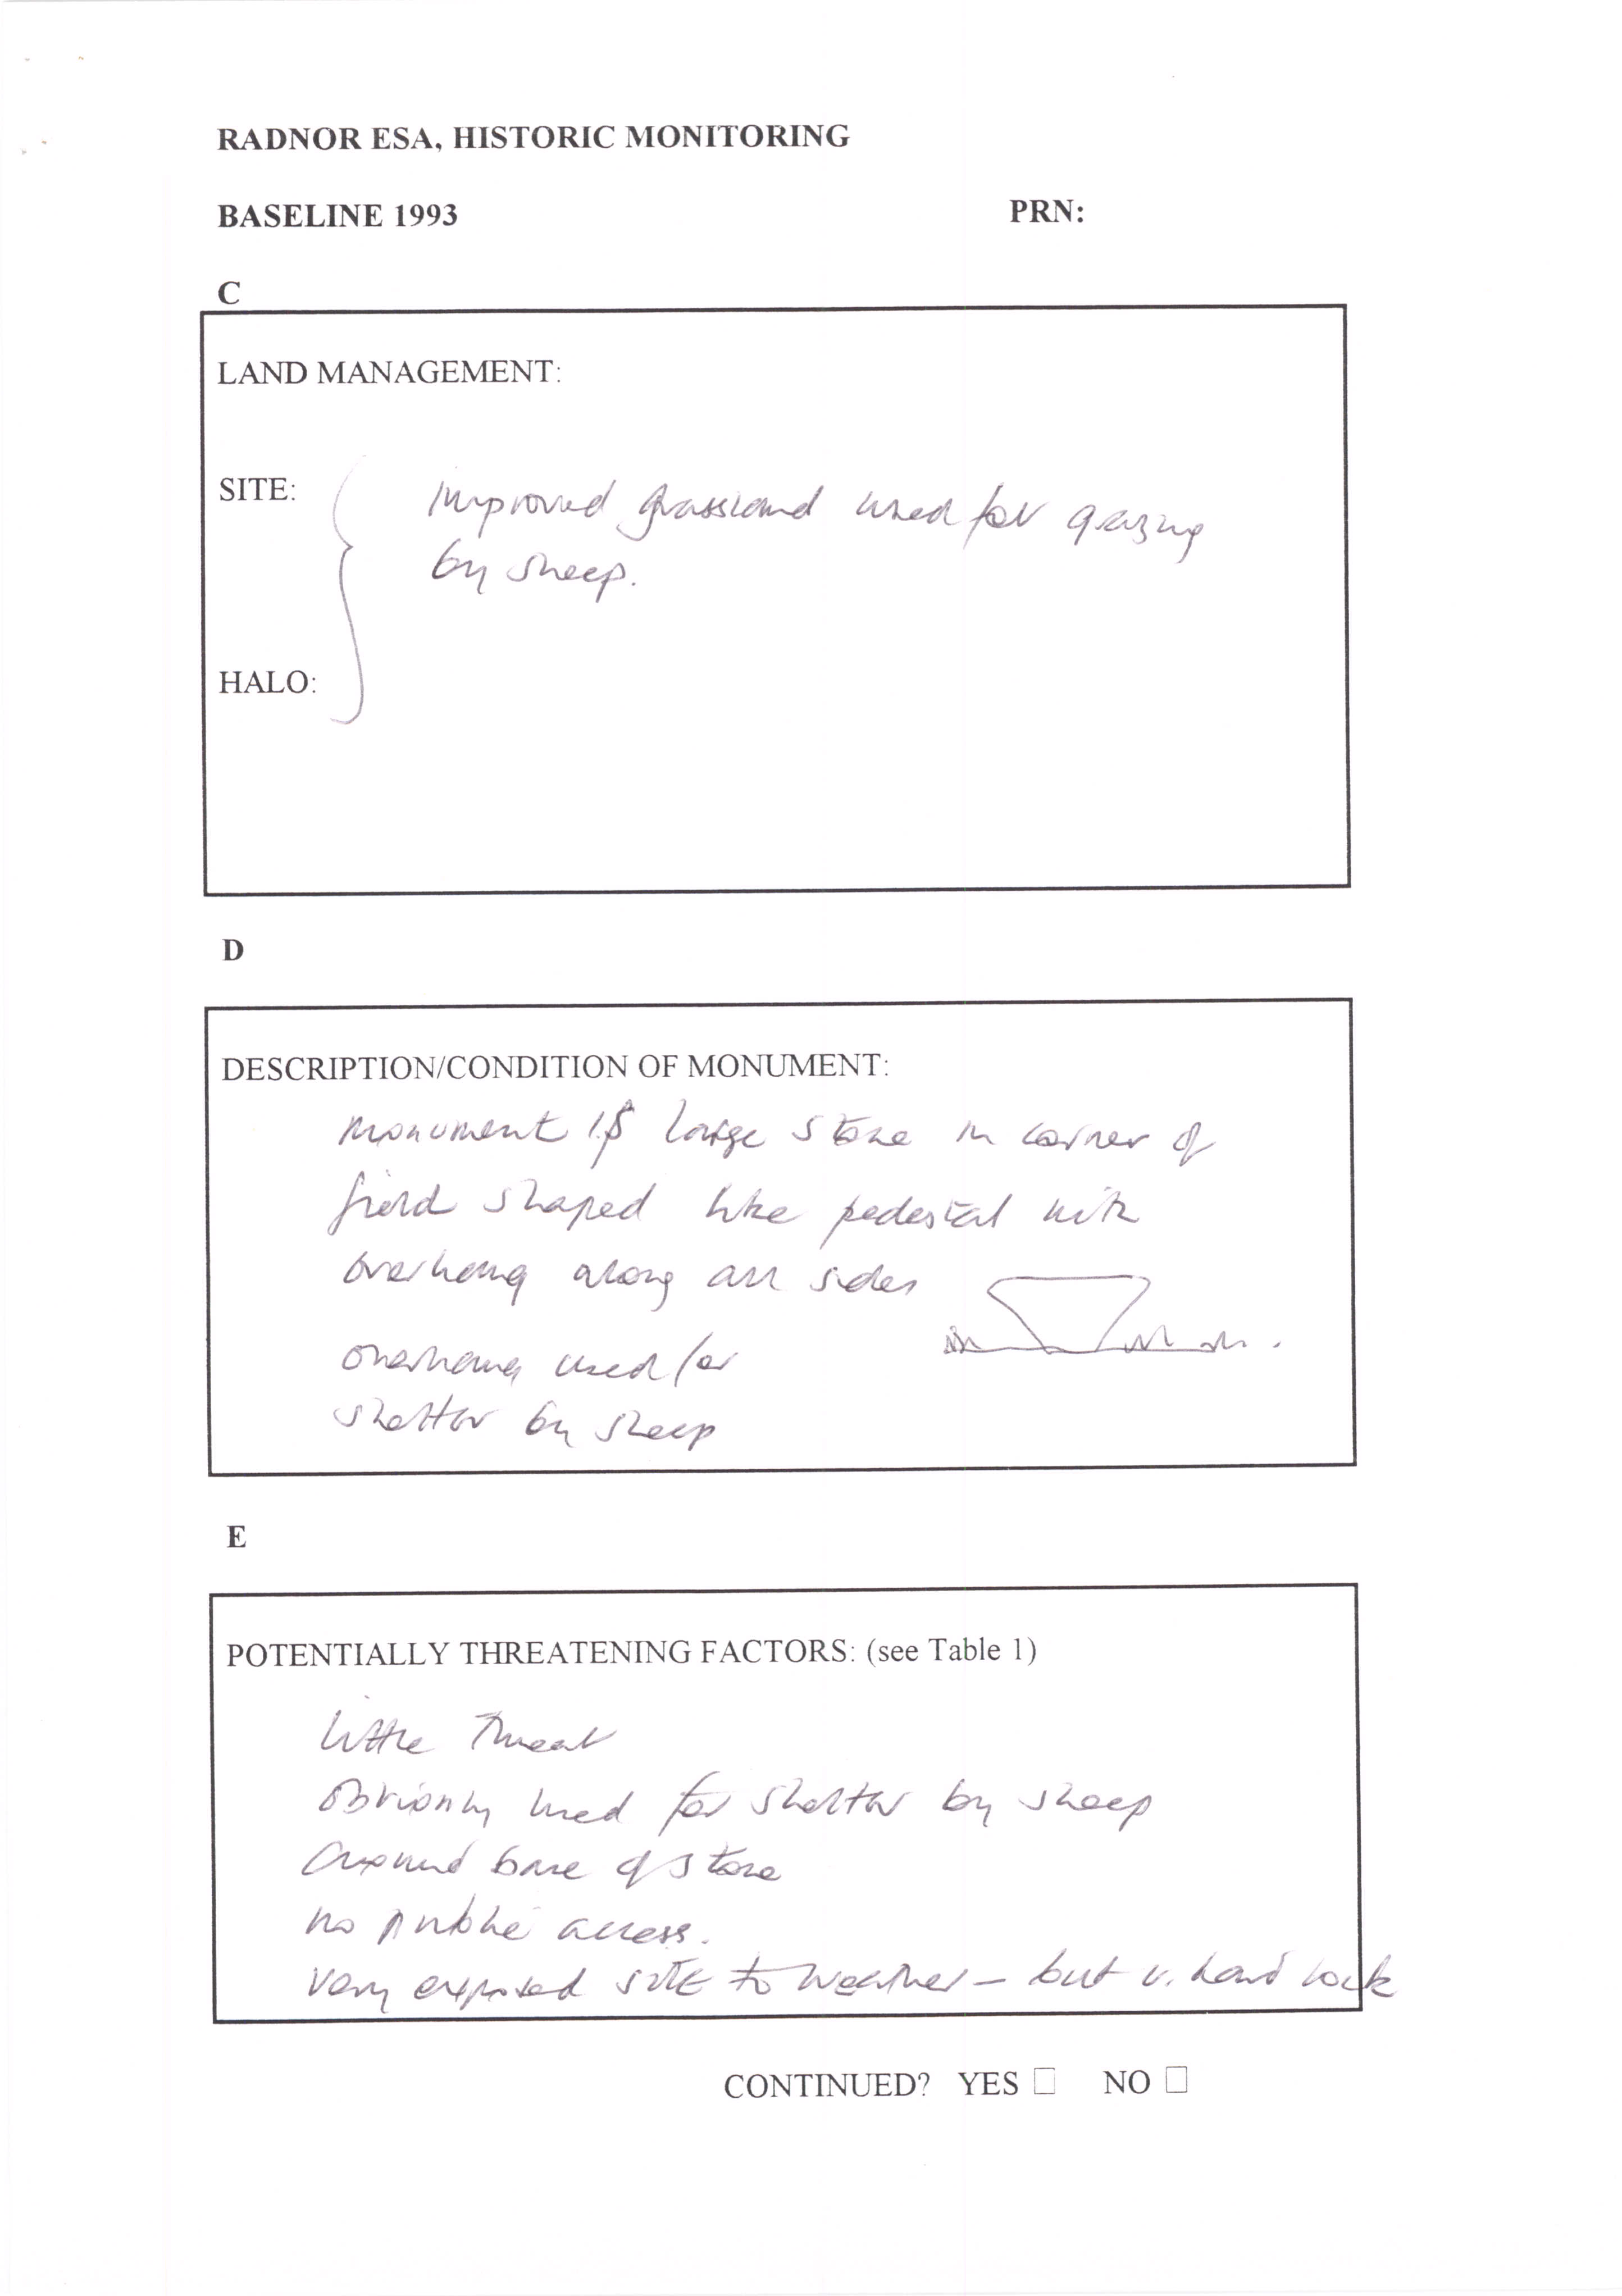 RADNOR ESA, HISTORIC MONITORING
BASELINE 1993 PRN:
C
LAND MANAGEMENT:
SITE: Improved grassland used for grazing
by sheep.
HALO:
D
DESCRIPTION/CONDITION OF MONUMENT:
monument is large stone in corner of
field shaped like pedestal with
overhang along all sides
overhang used for
shelter by sheep
E
POTENTIALLY THREATENING FACTORS: (see Table 1)
little threat
Obviously used for shelter by sheep
around base of stone
no public access.
very exposed site to weather – but v. hard rock
CONTINUED? YES ☐ NO ☐